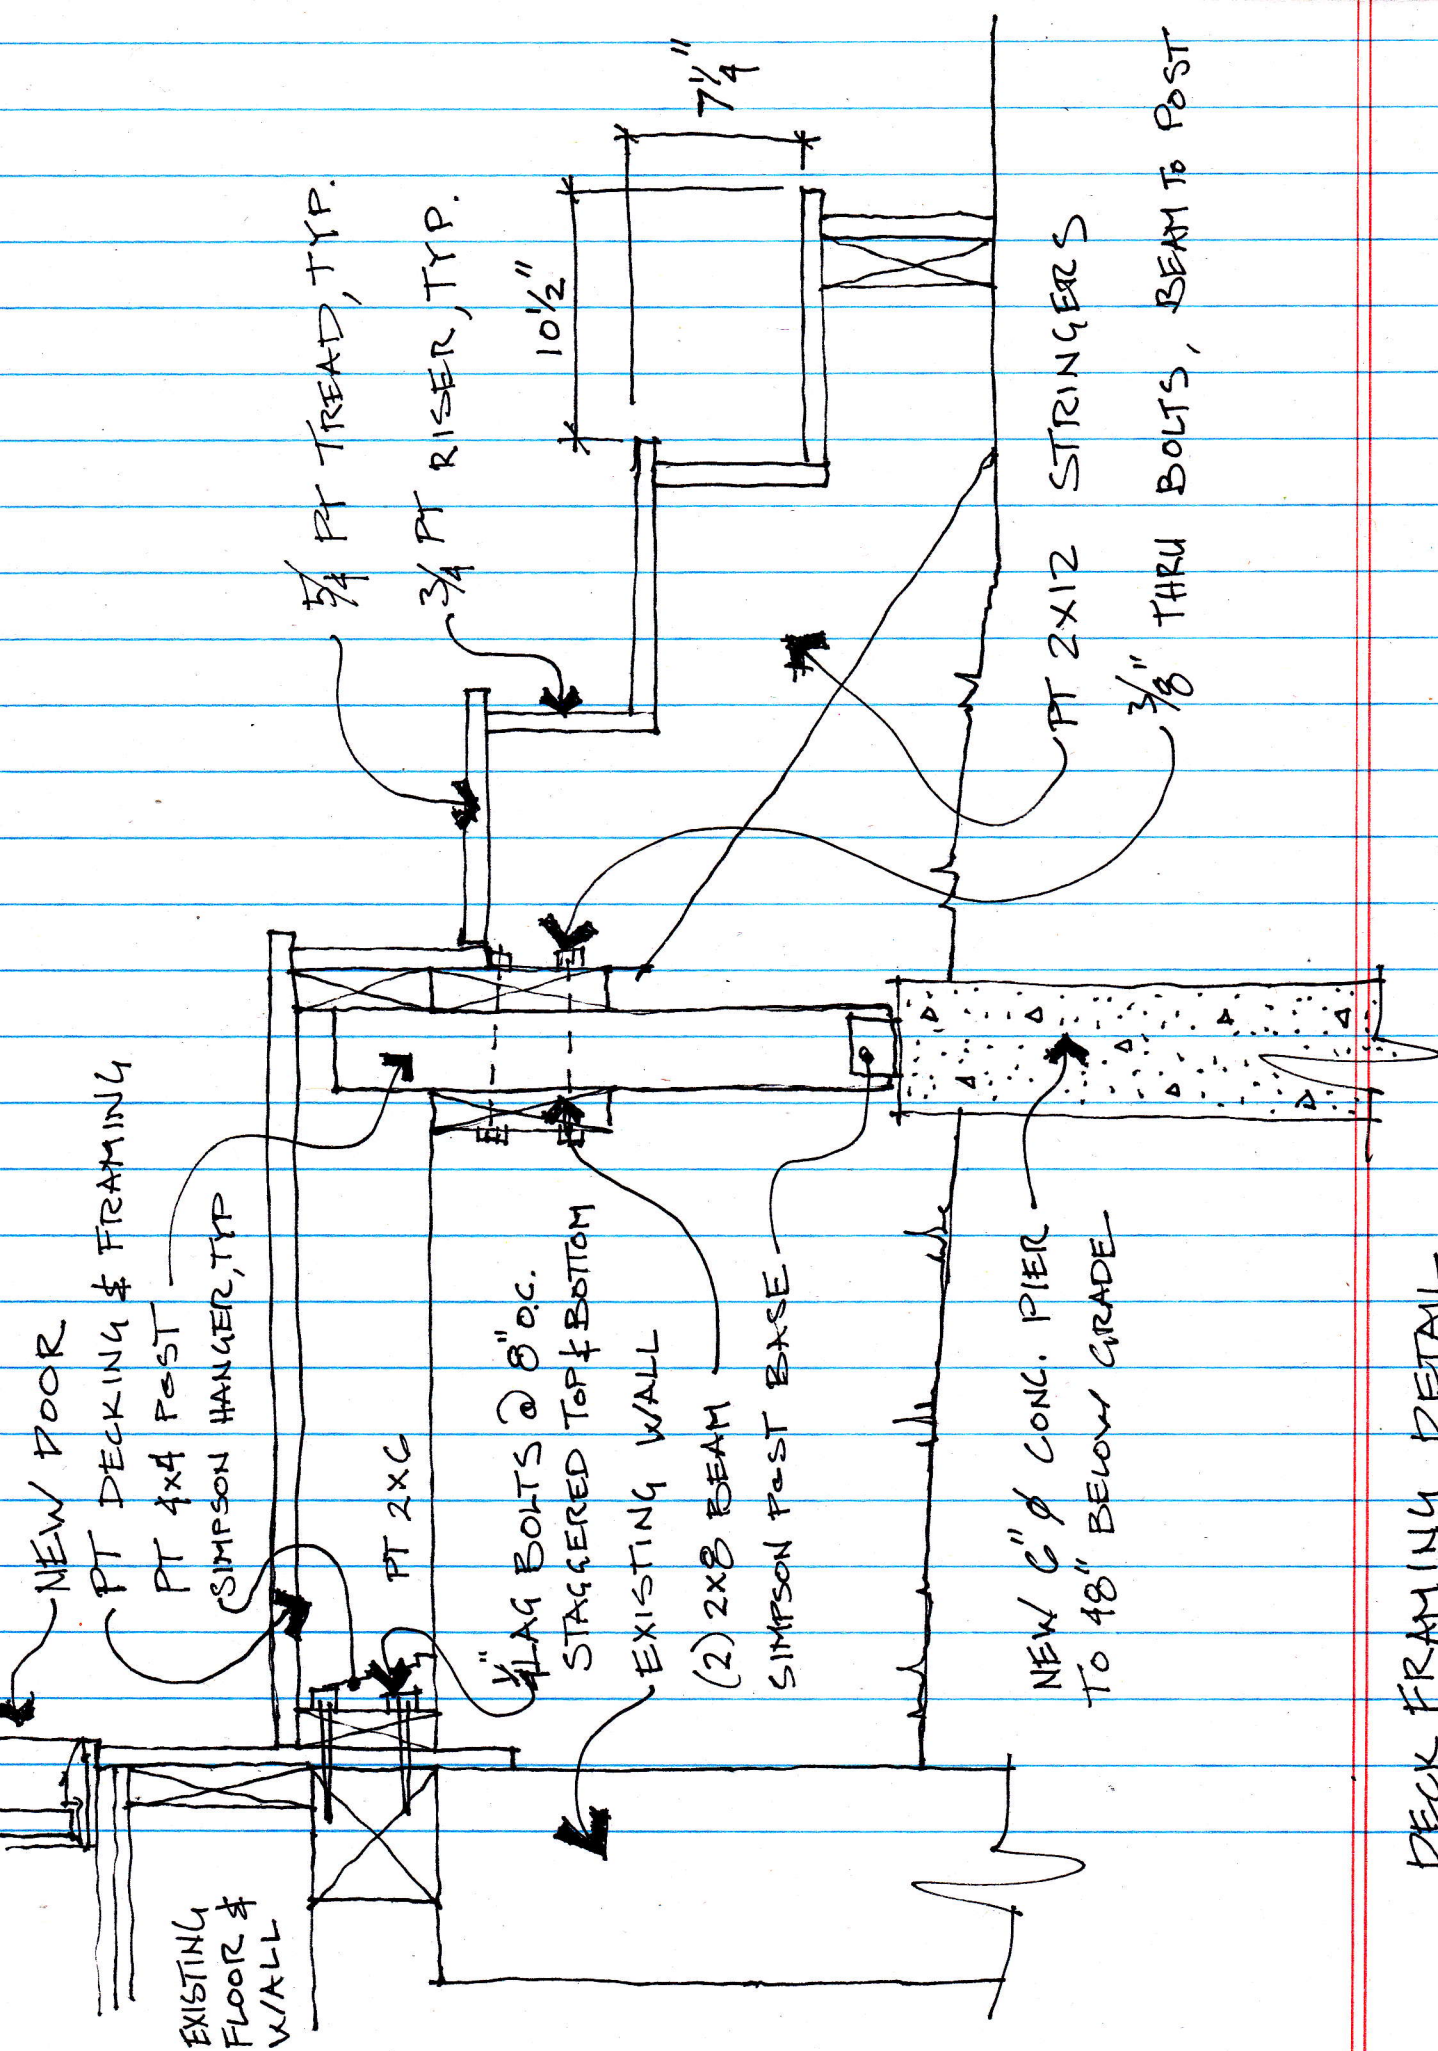 NEW DOOR
PT DECKING & FRAMING
PT 4x4 POST
SIMPSON HANGER, TYP
PT 2x6
1/4" LAG BOLTS @ 8" O.C.
STAGGERED TOP & BOTTOM
EXISTING WALL
(2) 2x8 BEAM
SIMPSON POST BASE
NEW 6" Ø CONC. PIER
TO 48" BELOW GRADE
EXISTING
FLOOR &
WALL
5/4 PT TREAD, TYP.
3/4 PT RISER, TYP.
10 1/2"
7 1/4"
PT 2x12 STRINGERS
3/8" THRU BOLTS, BEAM TO POST
DECK FRAMING DETAIL